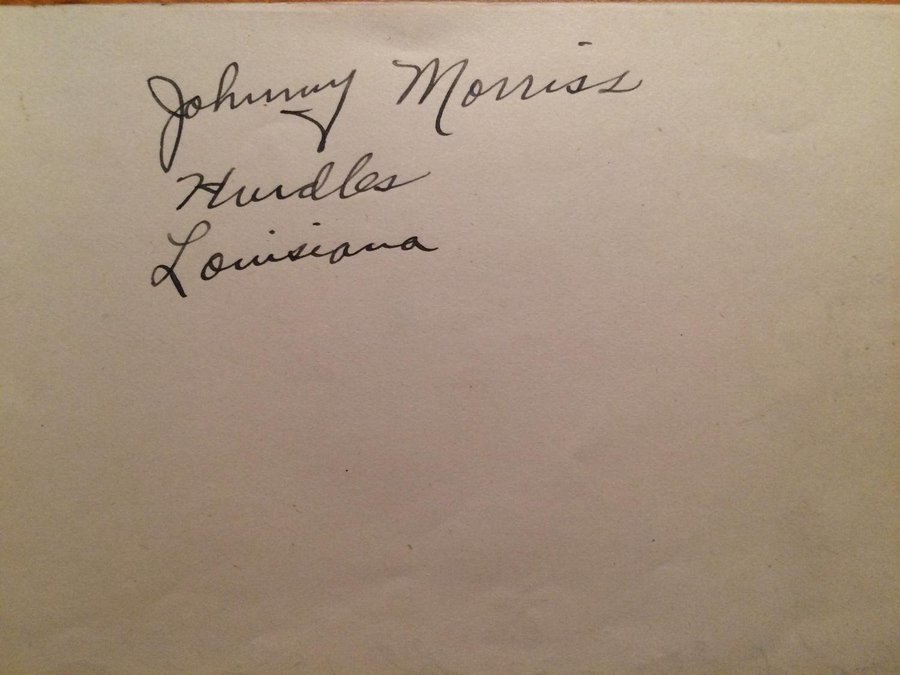 Johnny Morriss
Hurdles
Louisiana